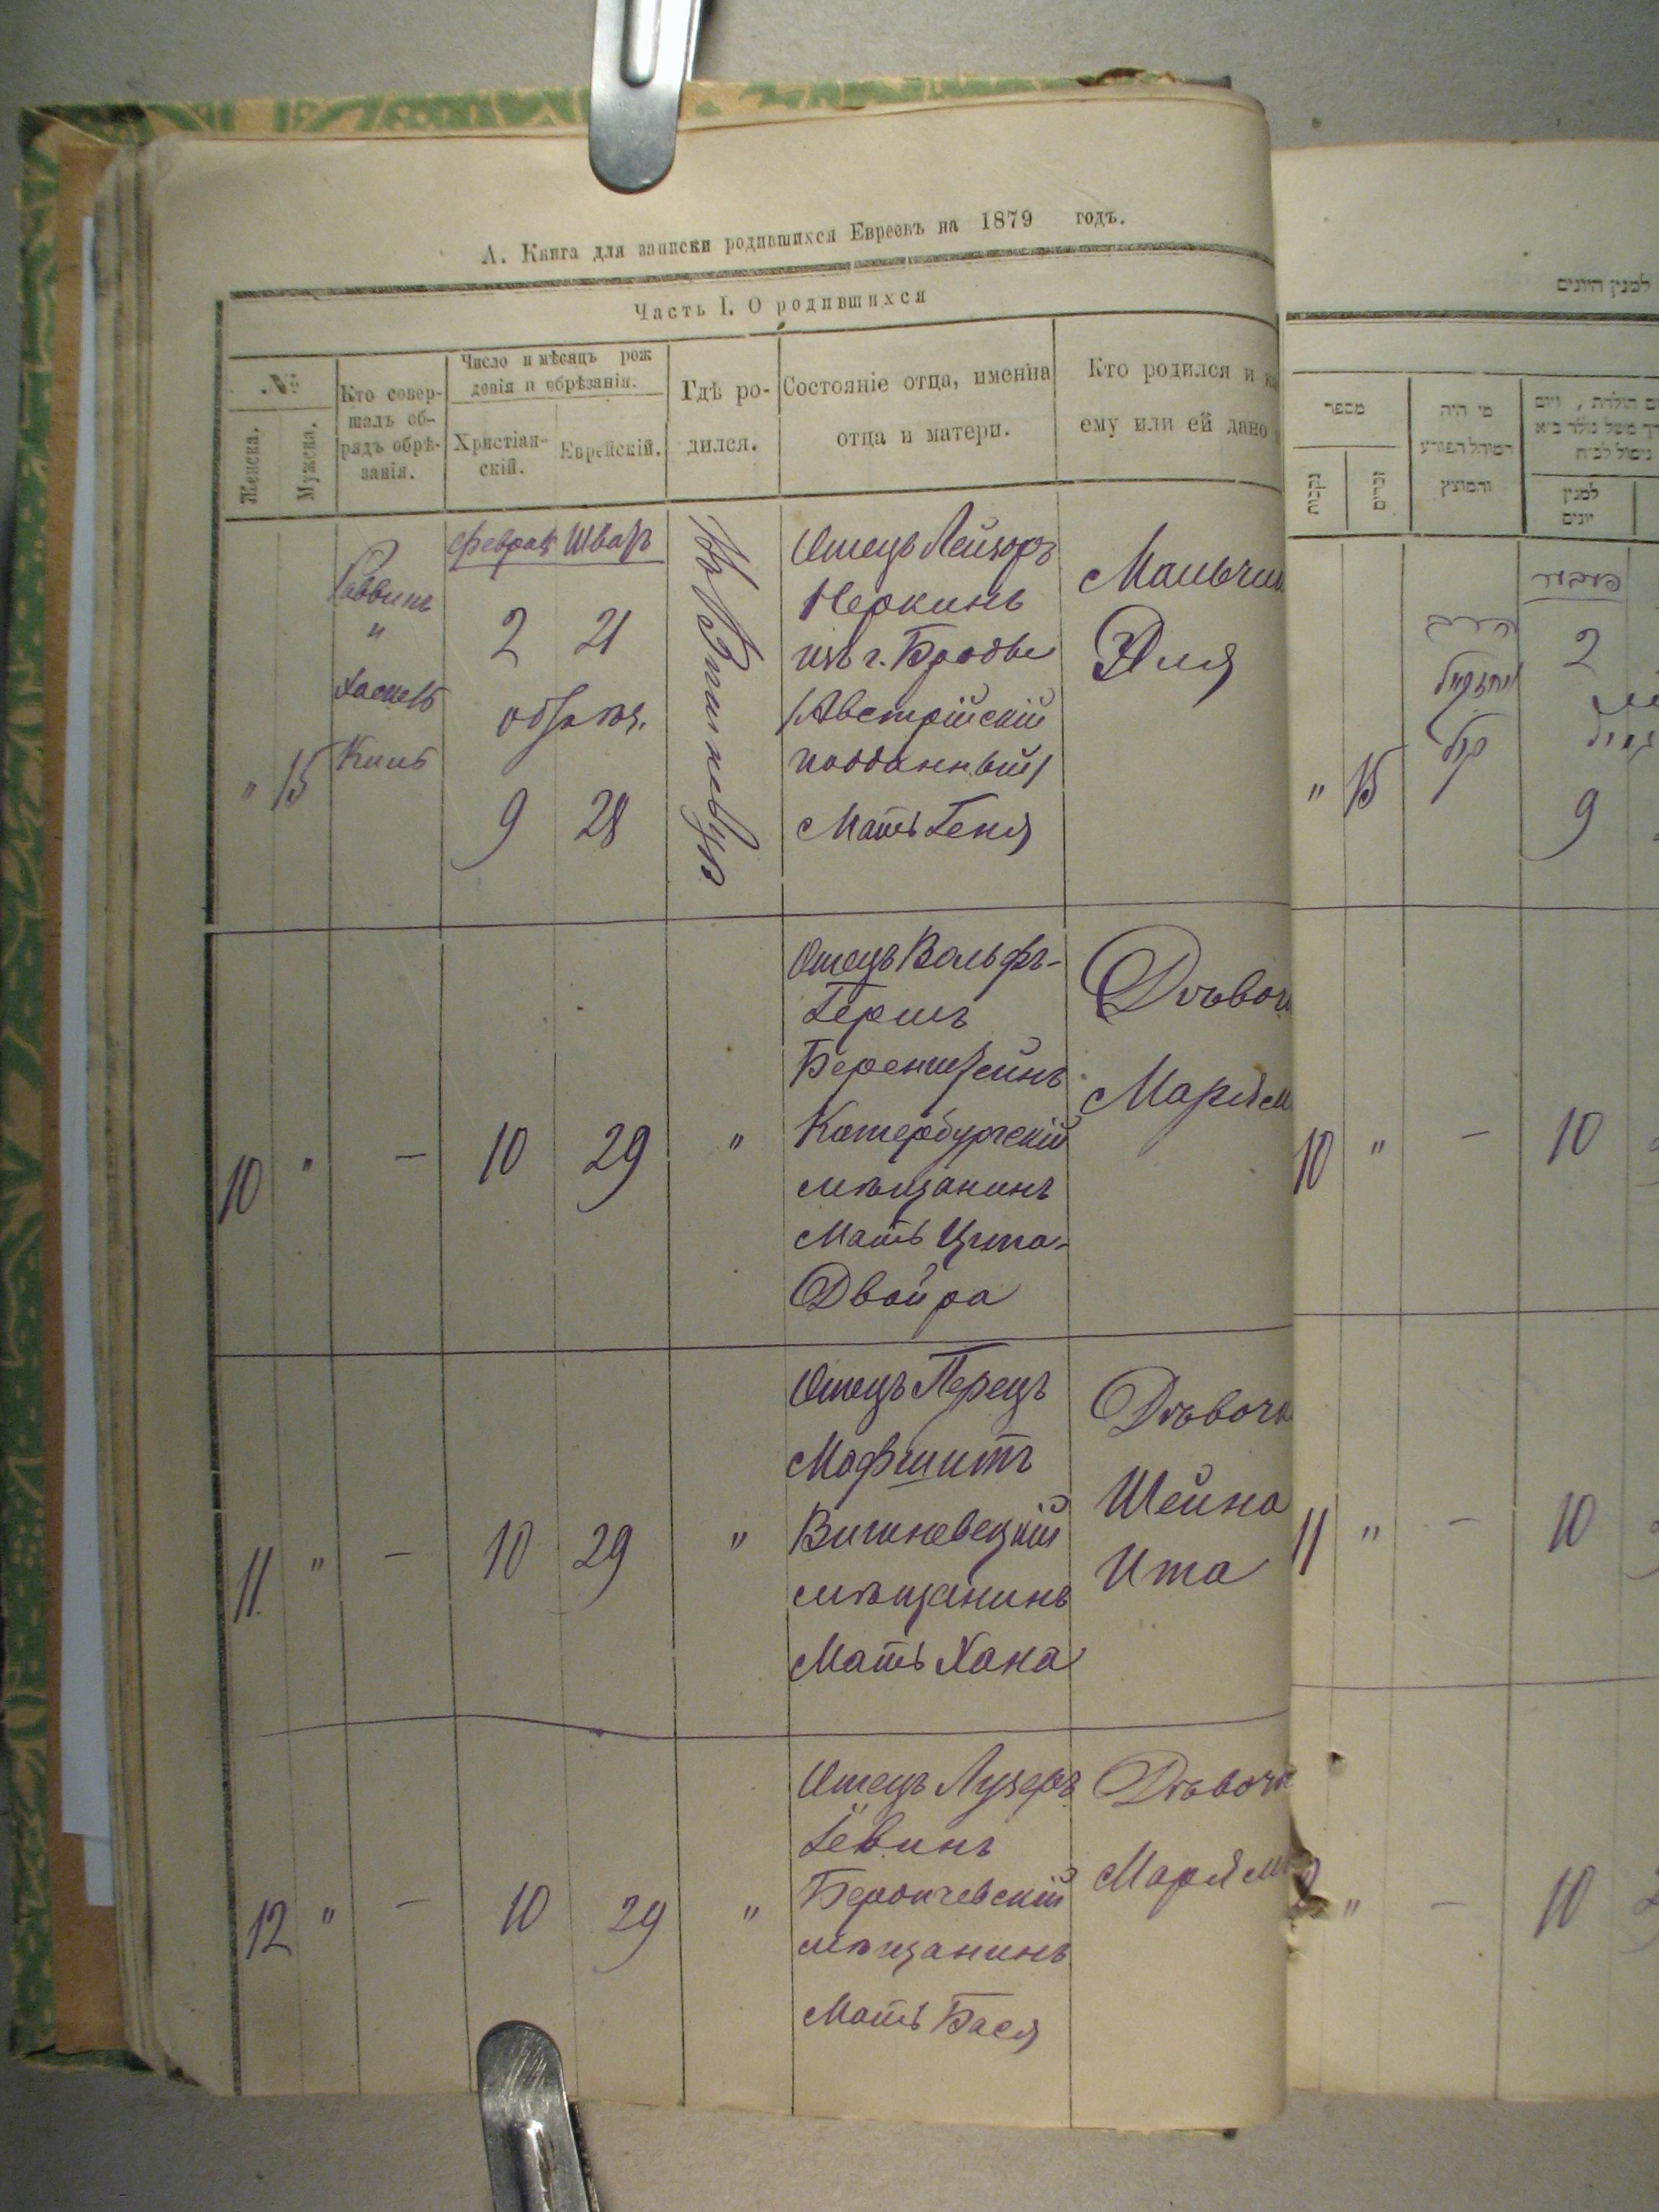 А. Книга для записки родившихся Евреевъ на 1879 годъ.
Часть I. О родившихся
№
Женска.
Мужеска.
Кто совер-
шалъ об-
рядъ обрѣ-
занія.
Число и мѣсяцъ рож
денія и обрѣзанія.
Христіан-
скій.
Еврейскій.
Гдѣ ро-
дился.
Состояніе отца, имена
отца и матери.
Кто родился и
ему или ей дано
" 15
Раввинъ
и
Февраля Шватъ
2 21
9 28
Отецъ Лейзоръ
изъ г. Броды
/Австрійскій
подданный/
Мать Геня
Мальчи
Эля
10 "
—
10 29
"
Отецъ Вольфъ-
Гершъ
Беренштейнъ
Катербургскій
мѣщанинъ
Мать Ципа-
Двойра
Дѣвоч
Марьям
11 "
—
10 29
"
Отецъ Перецъ
Мафшитъ
Вишневецкій
мѣщанинъ
Мать Хана
Дѣвочк
Шейна
Ита
12 "
—
10 29
"
Отецъ Лузеръ
Левинъ
Бердичевскій
мѣщанинъ
Мать Бася
Дѣвочк
Марьям
למנין היונים
מספר
נקבות
זכרים
מי היה
המוהל הפורע
והמוצץ
למנין
יונים
2
" 15
9
10 "
—
10
11 "
—
10
"
—
10